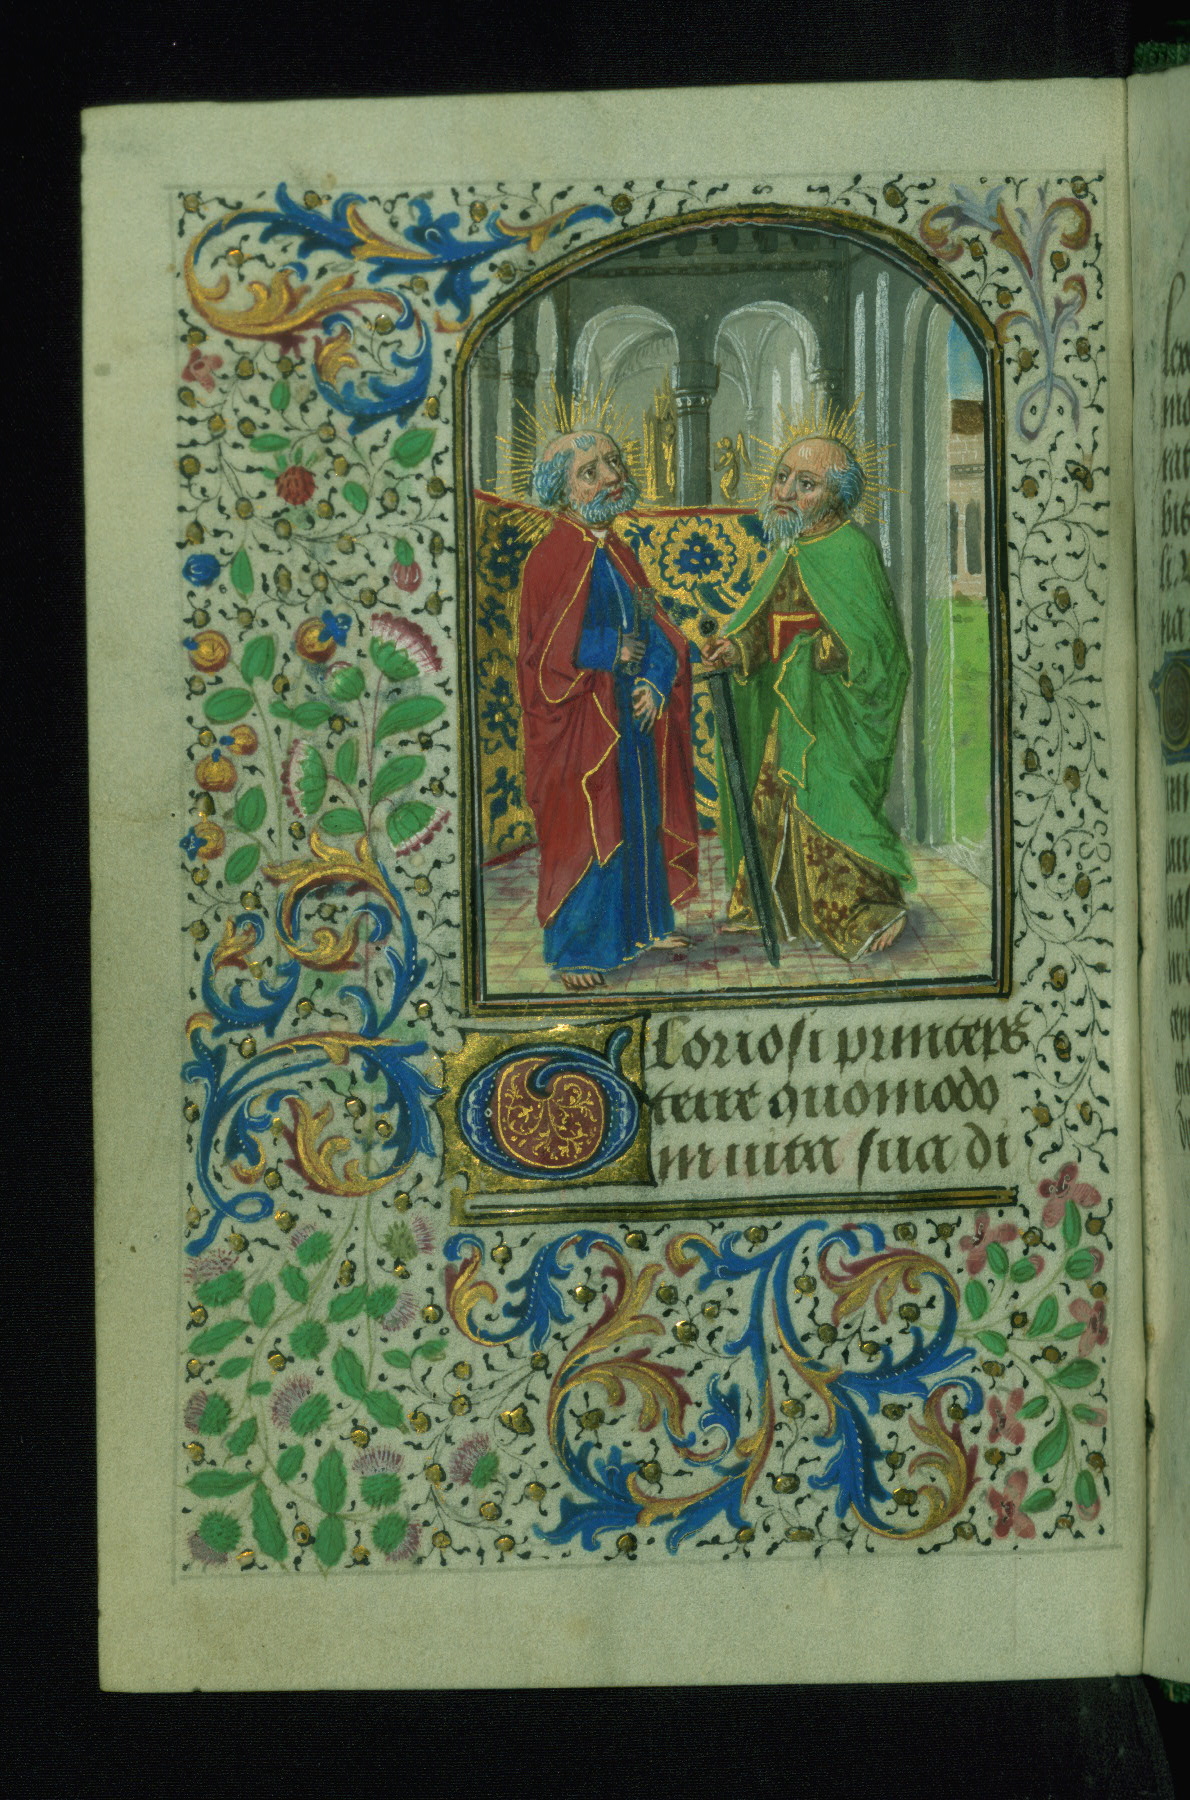 Gloriosi principes
terre quomodo
in uita sua di